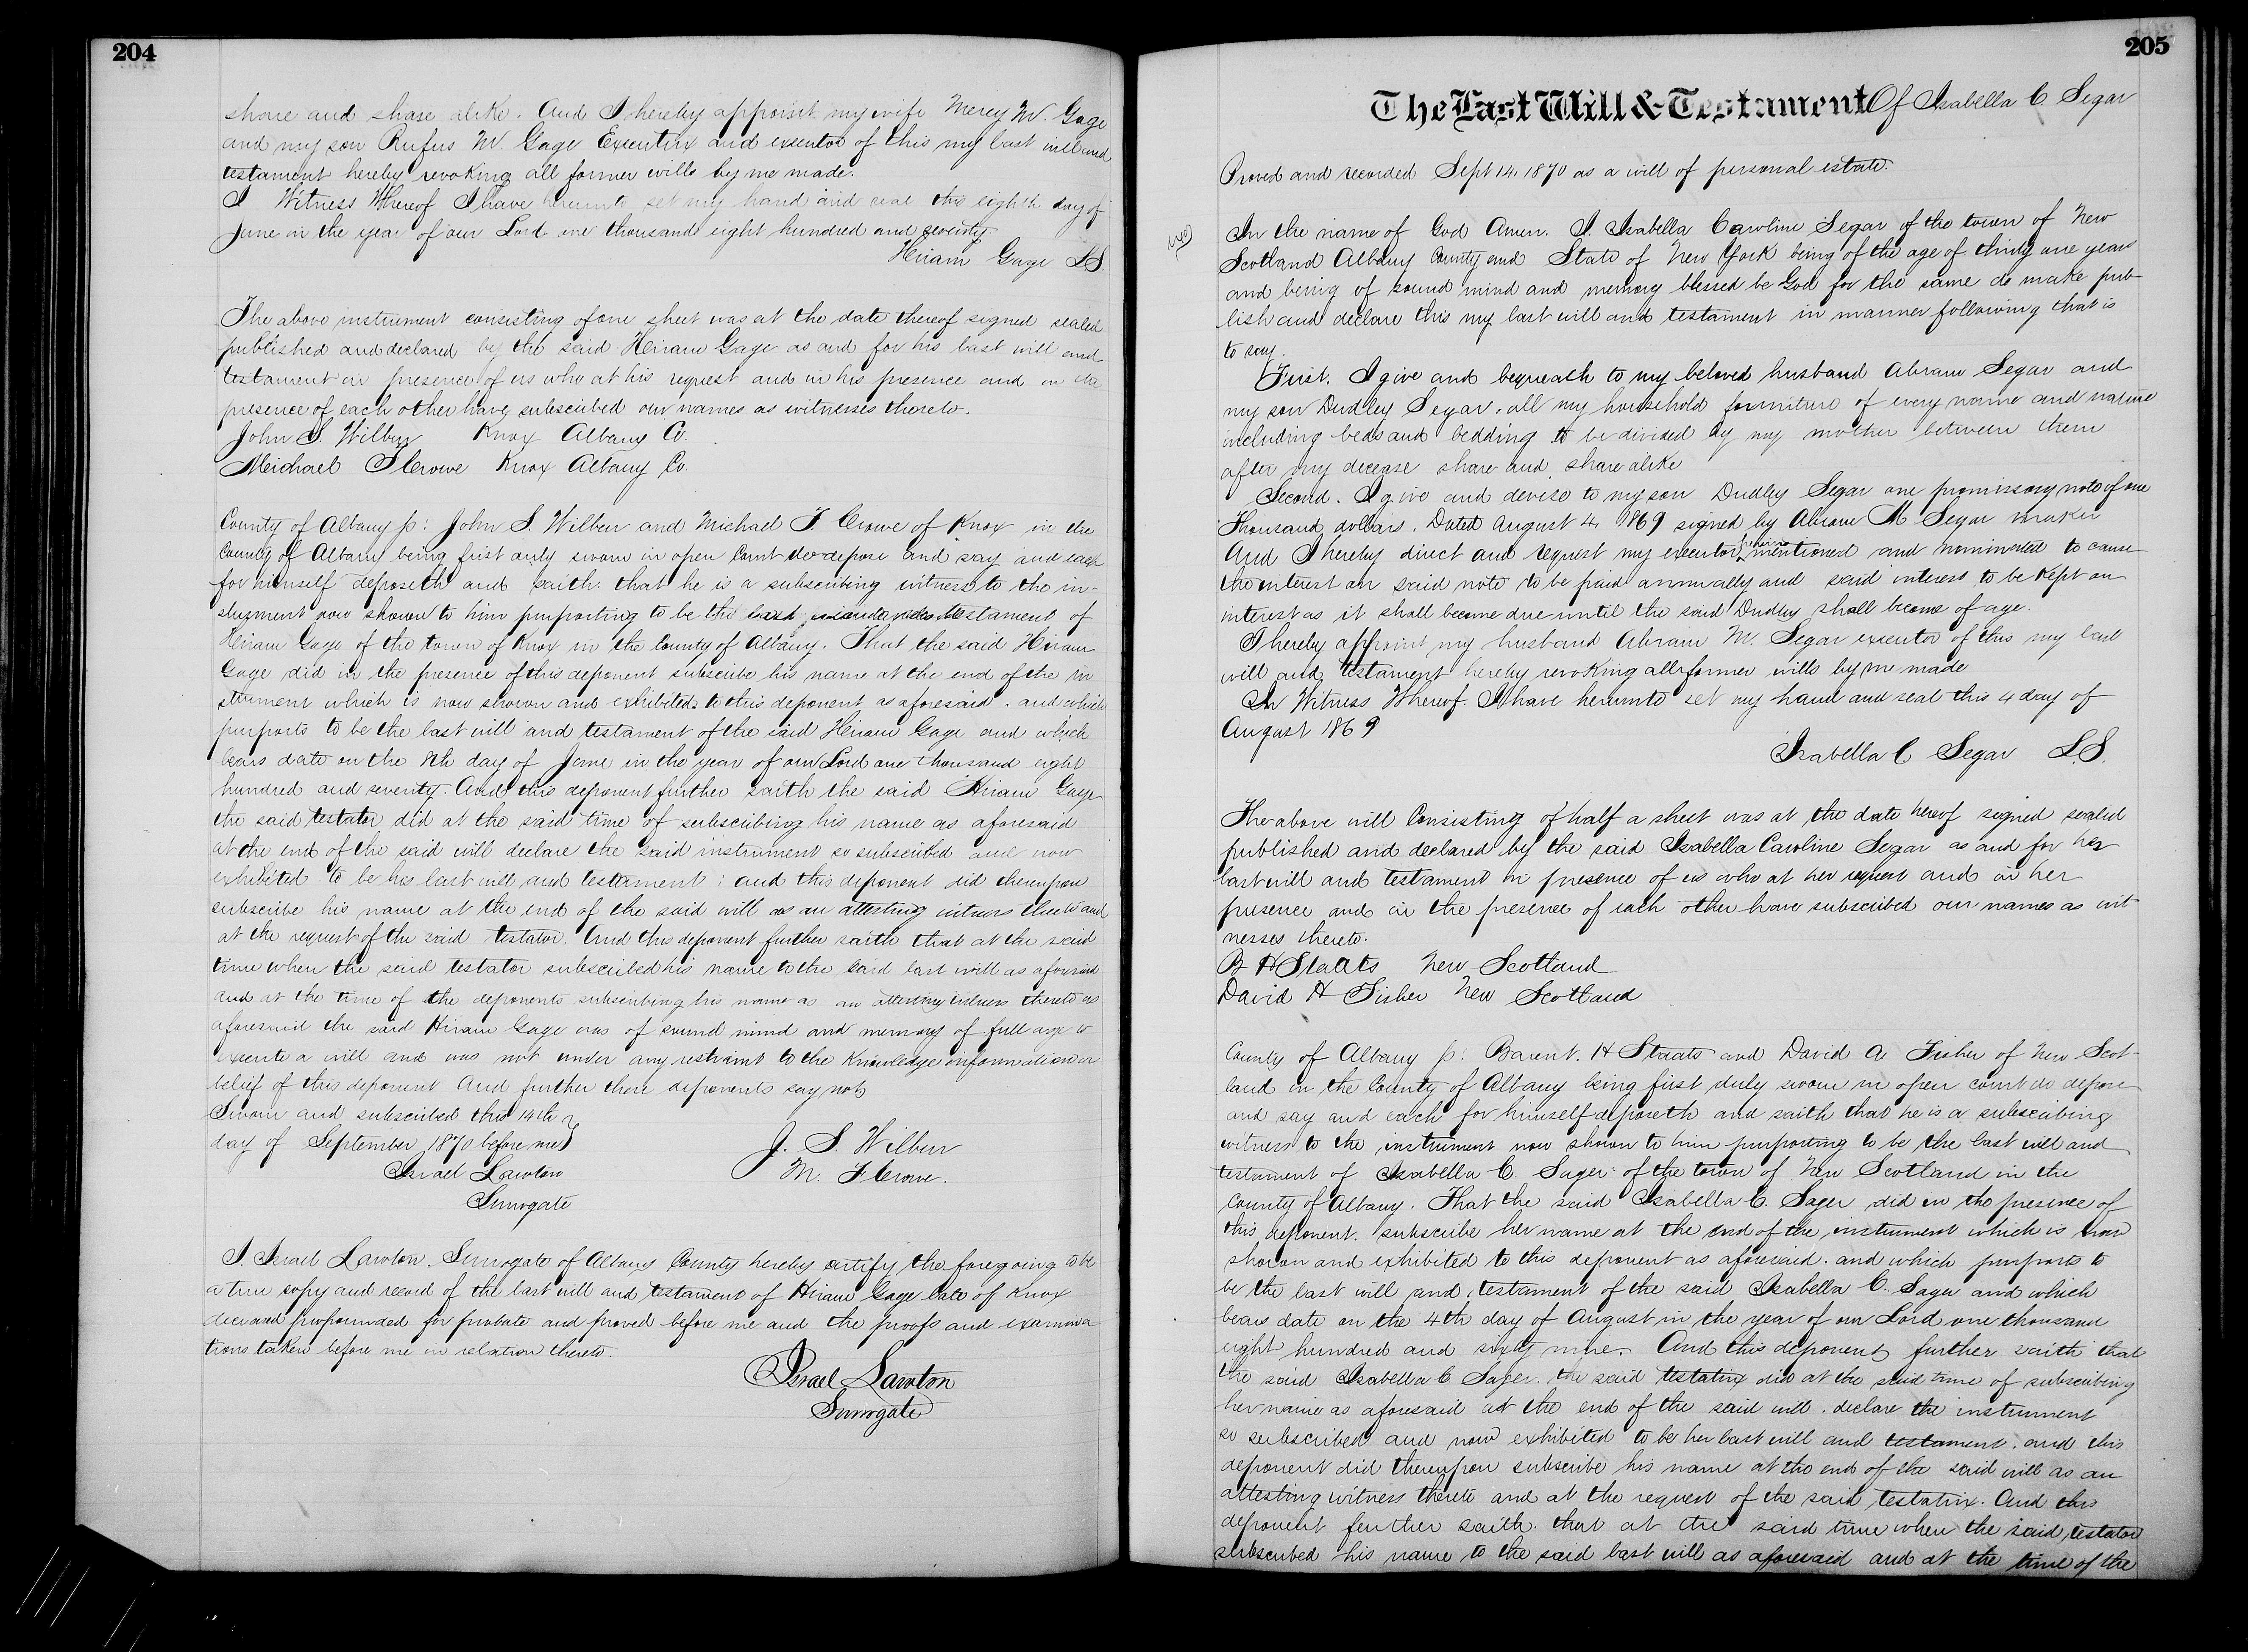 204
share and share alike. And I hereby appoint my wife Mercy M. Gage
and my son Rufus W. Gage Executrix and executor of this my last will and
testament hereby revoking all former wills by me made.
I Witness Whereof I have hereunto set my hand and seal this eighth day of
June in the year of our Lord one thousand eight hundred and seventy
Hiram Gage LS
The above instrument consisting of one sheet was at the date thereof signed sealed
published and declared by the said Hiram Gage as and for his last will and
testament in presence of us who at his request and in his presence and in the
presence of each other have subscribed our names as witnesses thereto.
John S. Wilbur Knox Albany Co.
Meichael F Crowe Knox Albany Co.
County of Albany ss: John S. Wilbur and Michael F. Crowe of Knox in the
County of Albany being first duly sworn in open Court do depose and say and each
for himself deposeth and saith. that he is a subscribing witness to the in-
strument now shown to him purporting to be the last will and testament of
Hiram Gage of the town of Knox in the County of Albany. That the said Hiram
Gage did in the presence of this deponent subscribe his name at the end of the in
strument which is now shown and exhibited to this deponent as aforesaid. and which
purports to be the last will and testament of the said Hiram Gage and which
bears date on the 8th day of June in the year of our Lord one thousand eight
hundred and seventy. And this deponent further saith the said Hiram Gage
the said testator did at the said time of subscribing his name as aforesaid
at the end of the said will declare the said instrument so subscribed and now
exhibited to be his last will and testament: and this deponent did thereupon
subscribe his name at the end of the said will as an attesting witness thereto and
at the request of the said testator. And this deponent further saith that at the said
time when the said testator subscribed his name to the said last will as aforesaid
and at the time of the deponents subscribing his name as an attesting witness thereto as
aforesaid the said Hiram Gage was of sound mind and memory of full age to
execute a will and was not under any restraint to the knowledge information or
belief of this deponent And further these deponents say not
Sworn and subscribed this 14th
day of September 1870 before me
Israel Lawton
Surrogate
J. S. Wilbur
M. F Crowe.
I. Israel Lawton. Surrogate of Albany County hereby certify the foregoing to be
a true copy and record of the last will and testament of Hiram Gage late of Knox
deceased propounded for probate and proved before me and the proofs and examina
tions taken before me in relation thereto.
Israel Lawton
Surrogate
205
The Last Will & Testament Of Isabella C Segar
Proved and recorded Sept 14. 1870 as a will of personal estate.
In the name of God Amen. I. Isabella Caroline Segar of the town of New
Scotland Albany County and State of New York being of the age of thirty one years
and being of sound mind and memory blessed be God for the same do make pub-
lish and declare this my last will and testament in manner following that is
to say.
First. I give and bequeath to my beloved husband Abram Segar and
my son Dudley Segar. all my household furniture of every name and nature
including beds and bedding to be divided by my mother between them
after my decease share and share alike
Second. I give and devise to my son Dudley Segar one promissory note of one
Thousand dollars. Dated August 4. 1869 signed by Abram M Segar maker
And I hereby direct and request my executor herein mentioned and nominated to cause
the interest on said note to be paid annually and said interest to be kept on
interest as it shall become due until the said Dudley shall become of age.
I hereby appoint my husband Abram M. Segar executor of this my last
will and testament hereby revoking all former wills by me made
In Witness Whereof. I have hereunto set my hand and seal this 4 day of
August 1869
Isabella C Segar L.S.
The above will Consisting of half a sheet was at the date hereof signed sealed
published and declared by the said Isabella Caroline Segar as and for her
last will and testament in presence of us who at her request and in her
presence and in the presence of each other have subscribed our names as wit
nesses thereto.
B H Staats New Scotland
David A Fisher New Scotland
County of Albany ss: Barent. H Staats and David A Fisher of New Scot-
land in the County of Albany being first duly sworn in open court do depose
and say and each for himself deposeth and saith that he is a subscribing
witness to the instrument now shown to him purporting to be the last will and
testament of Isabella C. Sager of the town of New Scotland in the
County of Albany. That the said Isabella C. Sager did in the presence of
this deponent. subscribe her name at the end of the instrument which is now
shown and exhibited to this deponent as aforesaid. and which purports to
be the last will and testament of the said Isabella C. Sager and which
bears date on the 4th day of August in the year of our Lord one thousand
eight hundred and sixty nine. And this deponent further saith that
the said Isabella C Sager. the said testatrix did at the said time of subscribing
her name as aforesaid at the end of the said will. declare the instrument
so subscribed and now exhibited to be her last will and testament. and this
deponent did thereupon subscribe his name at the end of the said will as an
attesting witness thereto and at the request of the said testatrix. And this
deponent further saith. that at the said time when the said testator
subscribed his name to the said last will as aforesaid and at the time of the